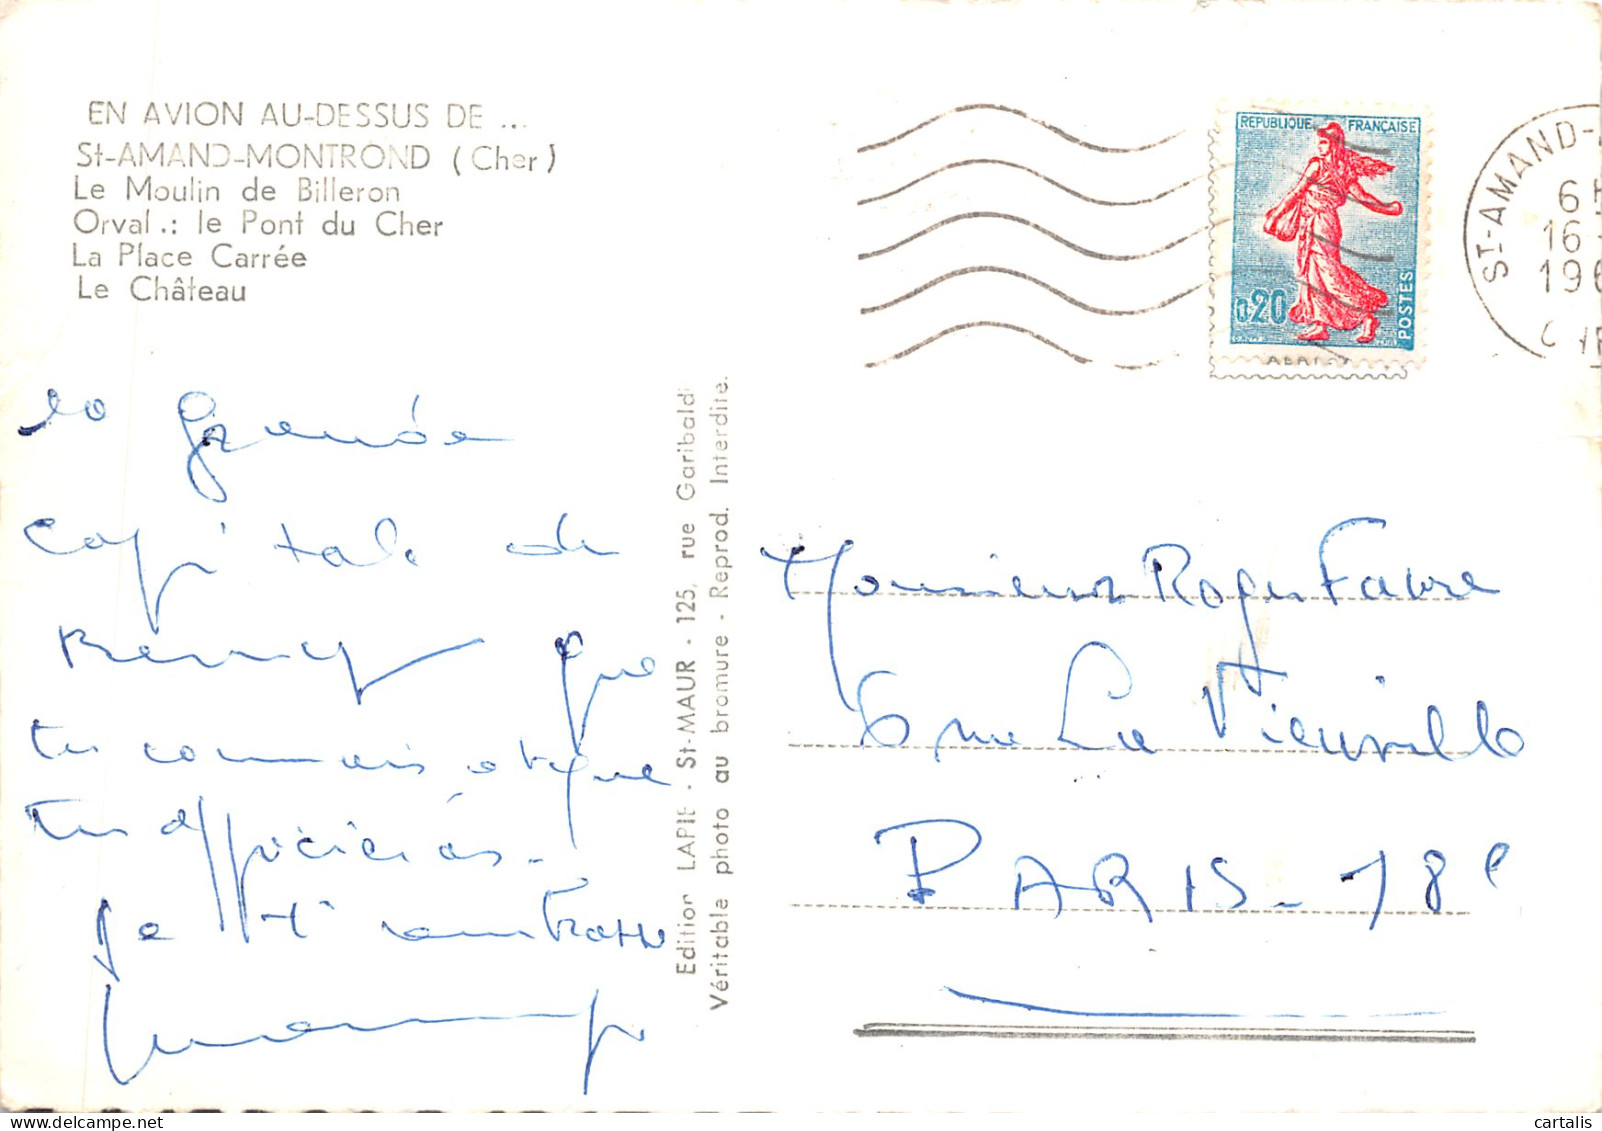 EN AVION AU-DESSUS DE ...
St-AMAND-MONTROND (Cher)
Le Moulin de Billeron
Orval.: le Pont du Cher
La Place Carrée
Le Château
REPUBLIQUE FRANÇAISE
0,20
POSTES
ST-AMAND-
16-
196
la grande
capitale de
que
tu connais et que
tu apprécies.
Je t'embrasse
Edition LAPIE - St-MAUR - 125, rue Garibaldi
Véritable photo au bromure - Reprod. Interdite.
Monsieur Roger Favre
6 rue La Vieuville
PARIS-18e
cartalis - delcampe.net